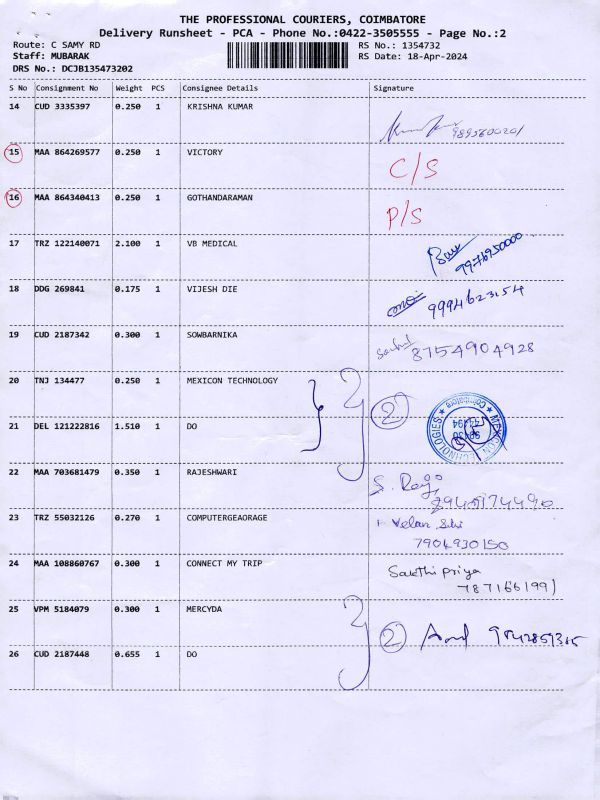 THE PROFESSIONAL COURIERS, COIMBATORE
Delivery Runsheet - PCA - Phone No.:0422-3505555 - Page No.:2
Route: C SAMY RD
RS No.: 1354732
Staff: MUBARAK
RS Date: 18-Apr-2024
DRS No.: DCJB135473202
S No Consignment No Weight PCS Consignee Details Signature
14 CUD 3335397 0.250 1 KRISHNA KUMAR
15 MAA 864269577 0.250 1 VICTORY C/S
16 MAA 864340413 0.250 1 GOTHANDARAMAN P/S
17 TRZ 122140071 2.100 1 VB MEDICAL
9976950000
18 DDG 269841 0.175 1 VIJESH DIE
9994623154
19 CUD 2187342 0.300 1 SOWBARNIKA
8754904928
20 TNJ 134477 0.250 1 MEXICON TECHNOLOGY
2
21 DEL 121222816 1.510 1 DO
22 MAA 703681479 0.350 1 RAJESHWARI
23 TRZ 55032126 0.270 1 COMPUTERGEAORAGE
Velan
7904930150
24 MAA 108860767 0.300 1 CONNECT MY TRIP
Sakthi priya
7871661991
25 VPM 5184079 0.300 1 MERCYDA
2
26 CUD 2187448 0.655 1 DO